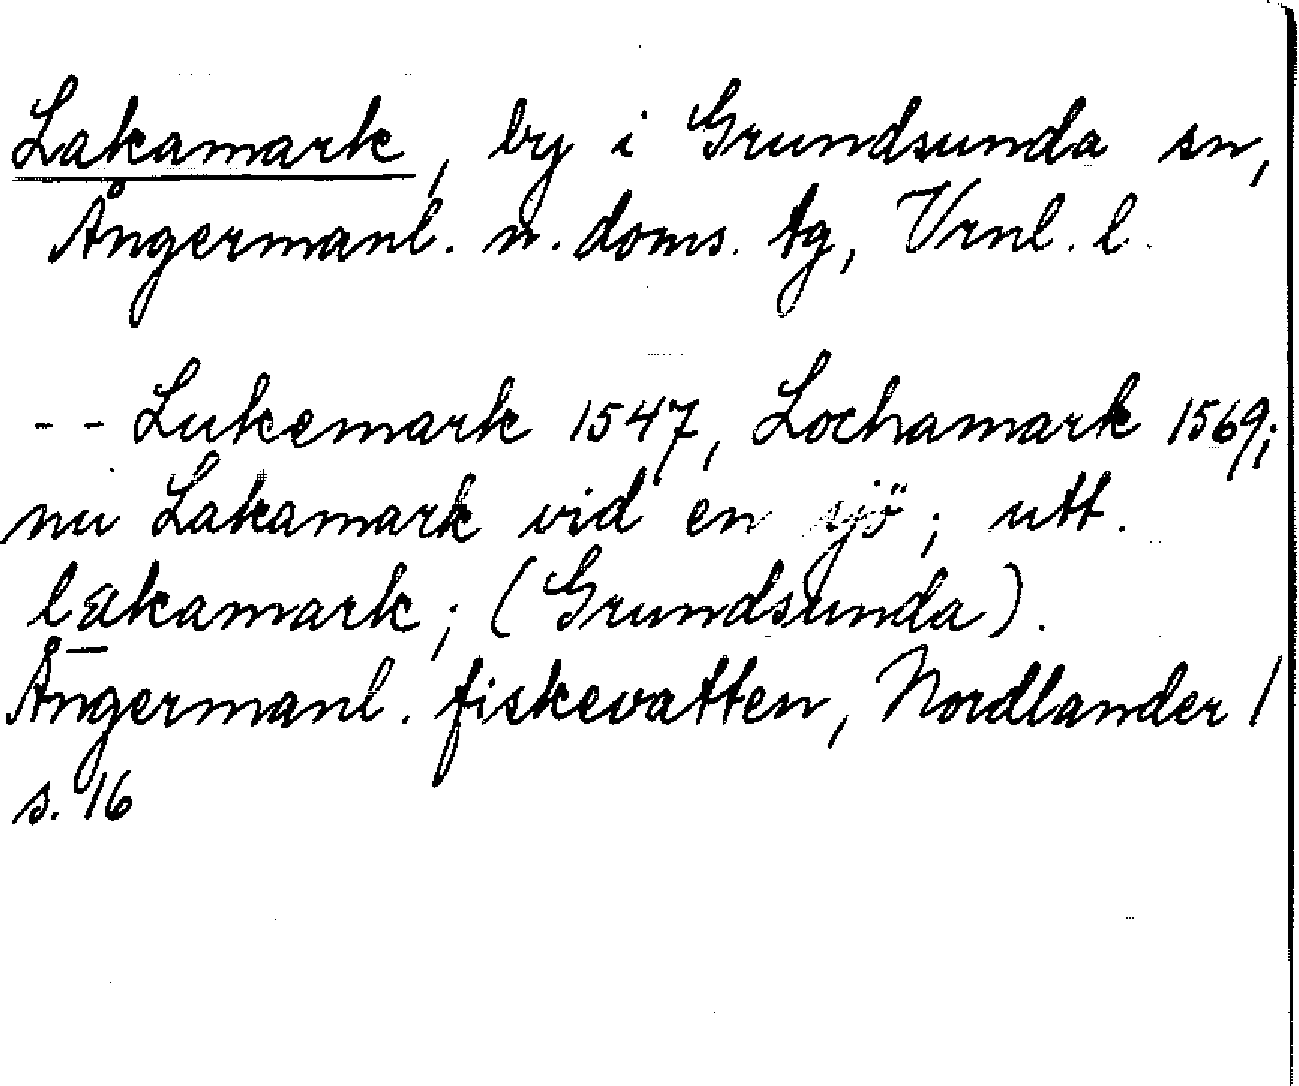 Lakamark, by i Grundsunda sn,
Ångermanl. n. doms. tg, Vrnl. l.
-- Lukemark 1547, Lochamark 1569;
nu Lakamark vid en sjö; utt.
lækamark; (Grundsunda).
Ångermanl. fiskevatten, Nordlander 1
s. 16